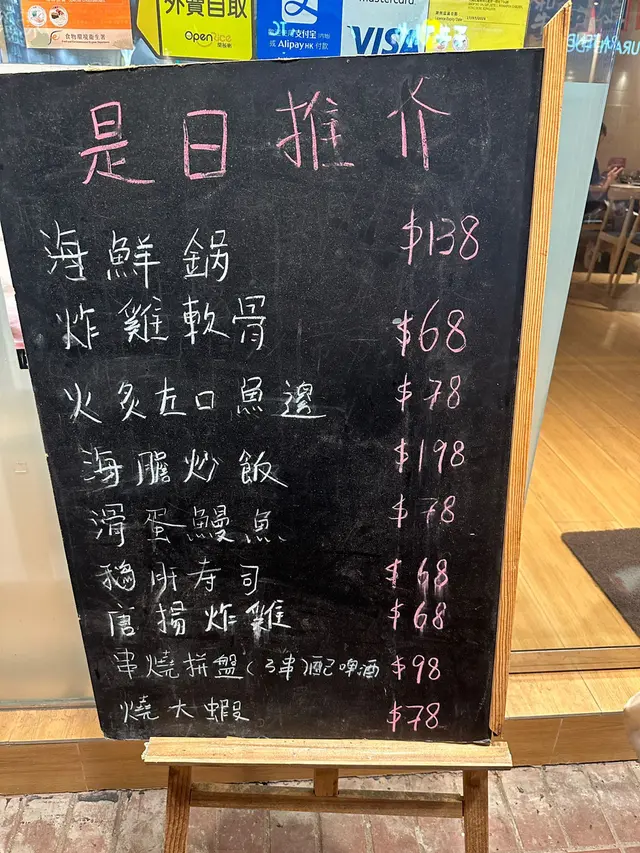 食物環境衞生署
外賣自取
OpenRice
開飯喇
支付宝
或 AlipayHK 付款
mastercard
VISA
是日推介
海鮮鍋 $138
炸雞軟骨 $68
火炙左口魚邊 $78
海膽炒飯 $198
滑蛋鰻魚 $78
鵝肝寿司 $68
唐揚炸雞 $68
串燒拼盤(3串)配啤酒 $98
燒大蝦 $78